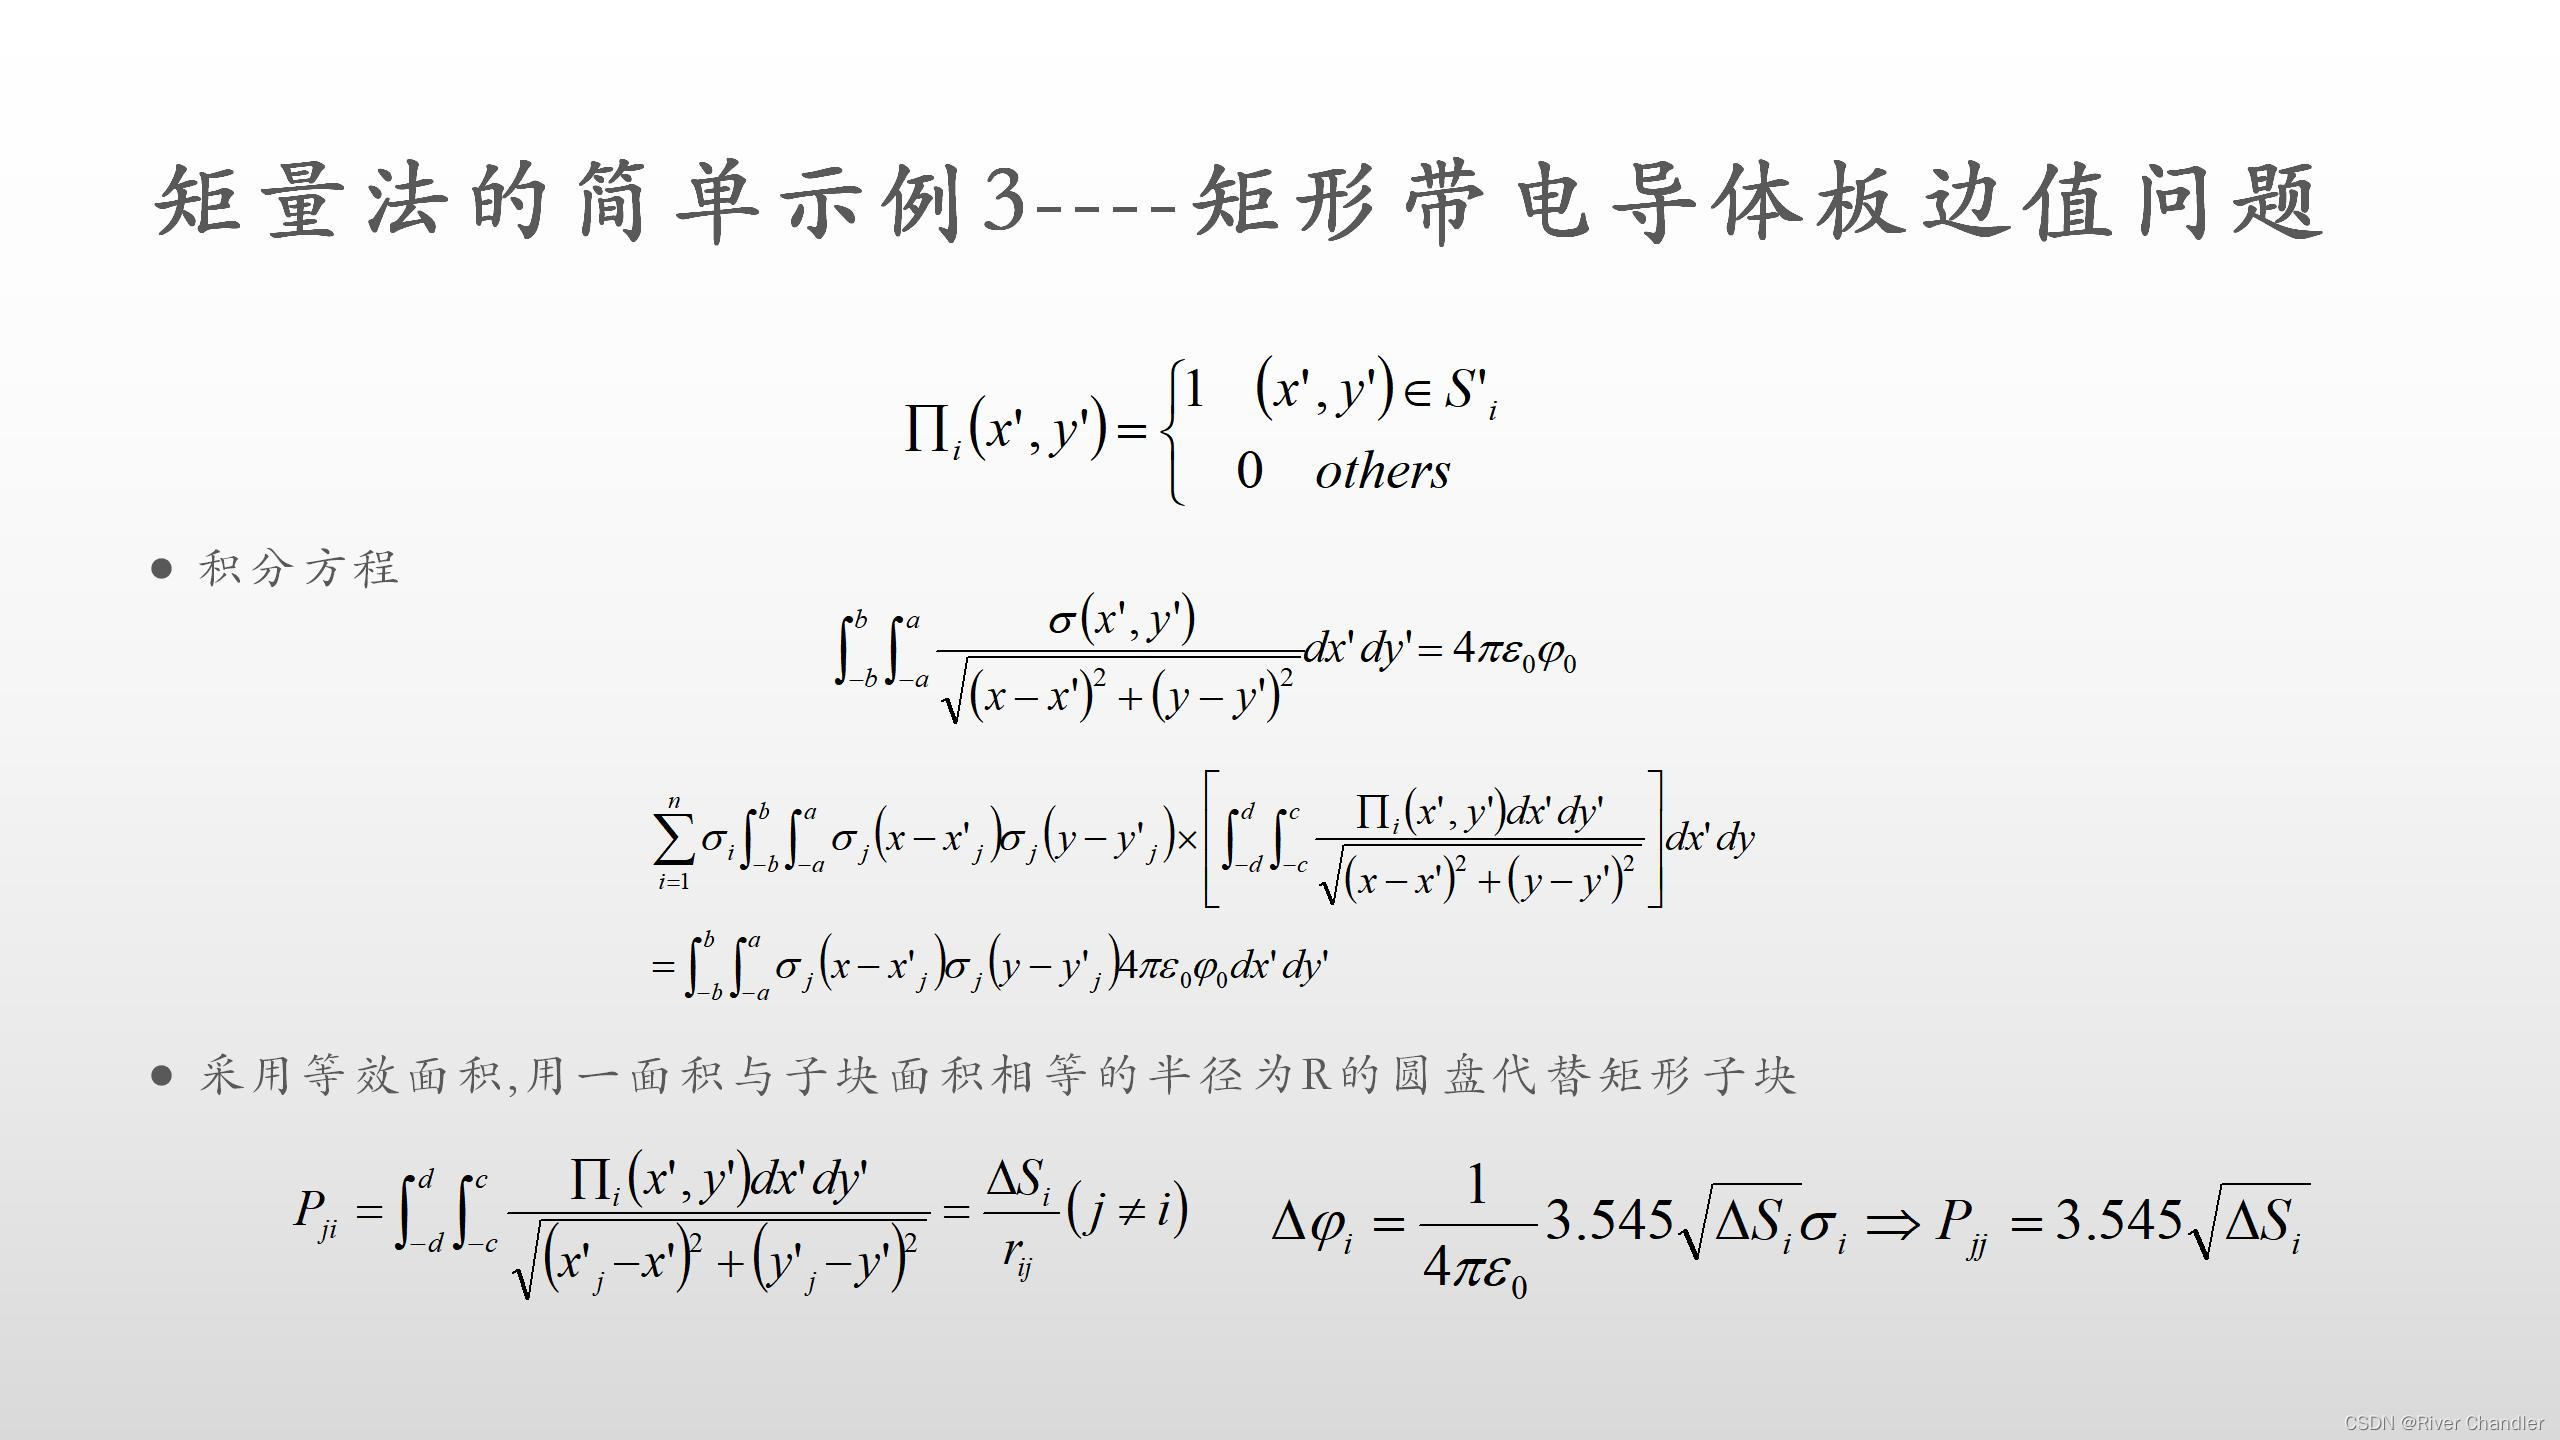 矩量法的简单示例3----矩形带电导体板边值问题
∏_i(x', y') = { 1 (x', y') ∈ S'_i
0 others
● 积分方程
∫_{-b}^{b} ∫_{-a}^{a} σ(x', y') / √((x − x')² + (y − y')²) dx' dy' = 4πε₀φ₀
∑_{i=1}^{n} σ_i ∫_{-b}^{b} ∫_{-a}^{a} σ_j(x − x'_j)σ_j(y − y'_j) × [ ∫_{-d}^{d} ∫_{-c}^{c} ∏_i(x', y')dx' dy' / √((x − x')² + (y − y')²) ] dx' dy
= ∫_{-b}^{b} ∫_{-a}^{a} σ_j(x − x'_j)σ_j(y − y'_j)4πε₀φ₀dx' dy'
● 采用等效面积,用一面积与子块面积相等的半径为R的圆盘代替矩形子块
P_{ji} = ∫_{-d}^{d} ∫_{-c}^{c} ∏_i(x', y')dx' dy' / √((x'_j − x')² + (y'_j − y')²) = ΔS_i / r_{ij} (j ≠ i) Δφ_i = 1 / 4πε₀ 3.545√ΔS_i σ_i ⇒ P_{jj} = 3.545√ΔS_i
CSDN @River Chandler